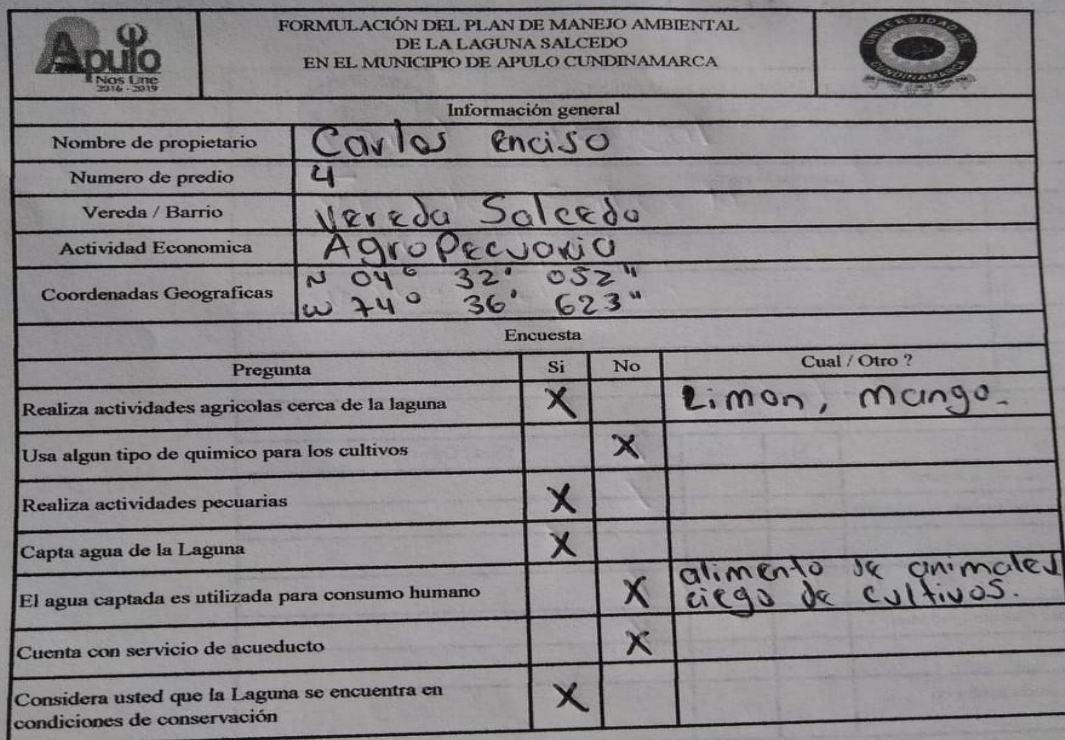 Apulo
Nos Une
2016 - 2019
FORMULACIÓN DEL PLAN DE MANEJO AMBIENTAL
DE LA LAGUNA SALCEDO
EN EL MUNICIPIO DE APULO CUNDINAMARCA
UNIVERSIDAD DE CUNDINAMARCA
Información general
Nombre de propietario Carlos enciso
Numero de predio 4
Vereda / Barrio Vereda Salcedo
Actividad Economica AgroPecuaria
Coordenadas Geograficas N 04° 32' 052"
W 74° 36' 623"
Encuesta
Pregunta Si No Cual / Otro ?
Realiza actividades agricolas cerca de la laguna X Limon, mango.
Usa algun tipo de quimico para los cultivos X
Realiza actividades pecuarias X
Capta agua de la Laguna X
El agua captada es utilizada para consumo humano X alimento de animales
riego de cultivos.
Cuenta con servicio de acueducto X
Considera usted que la Laguna se encuentra en
condiciones de conservación X